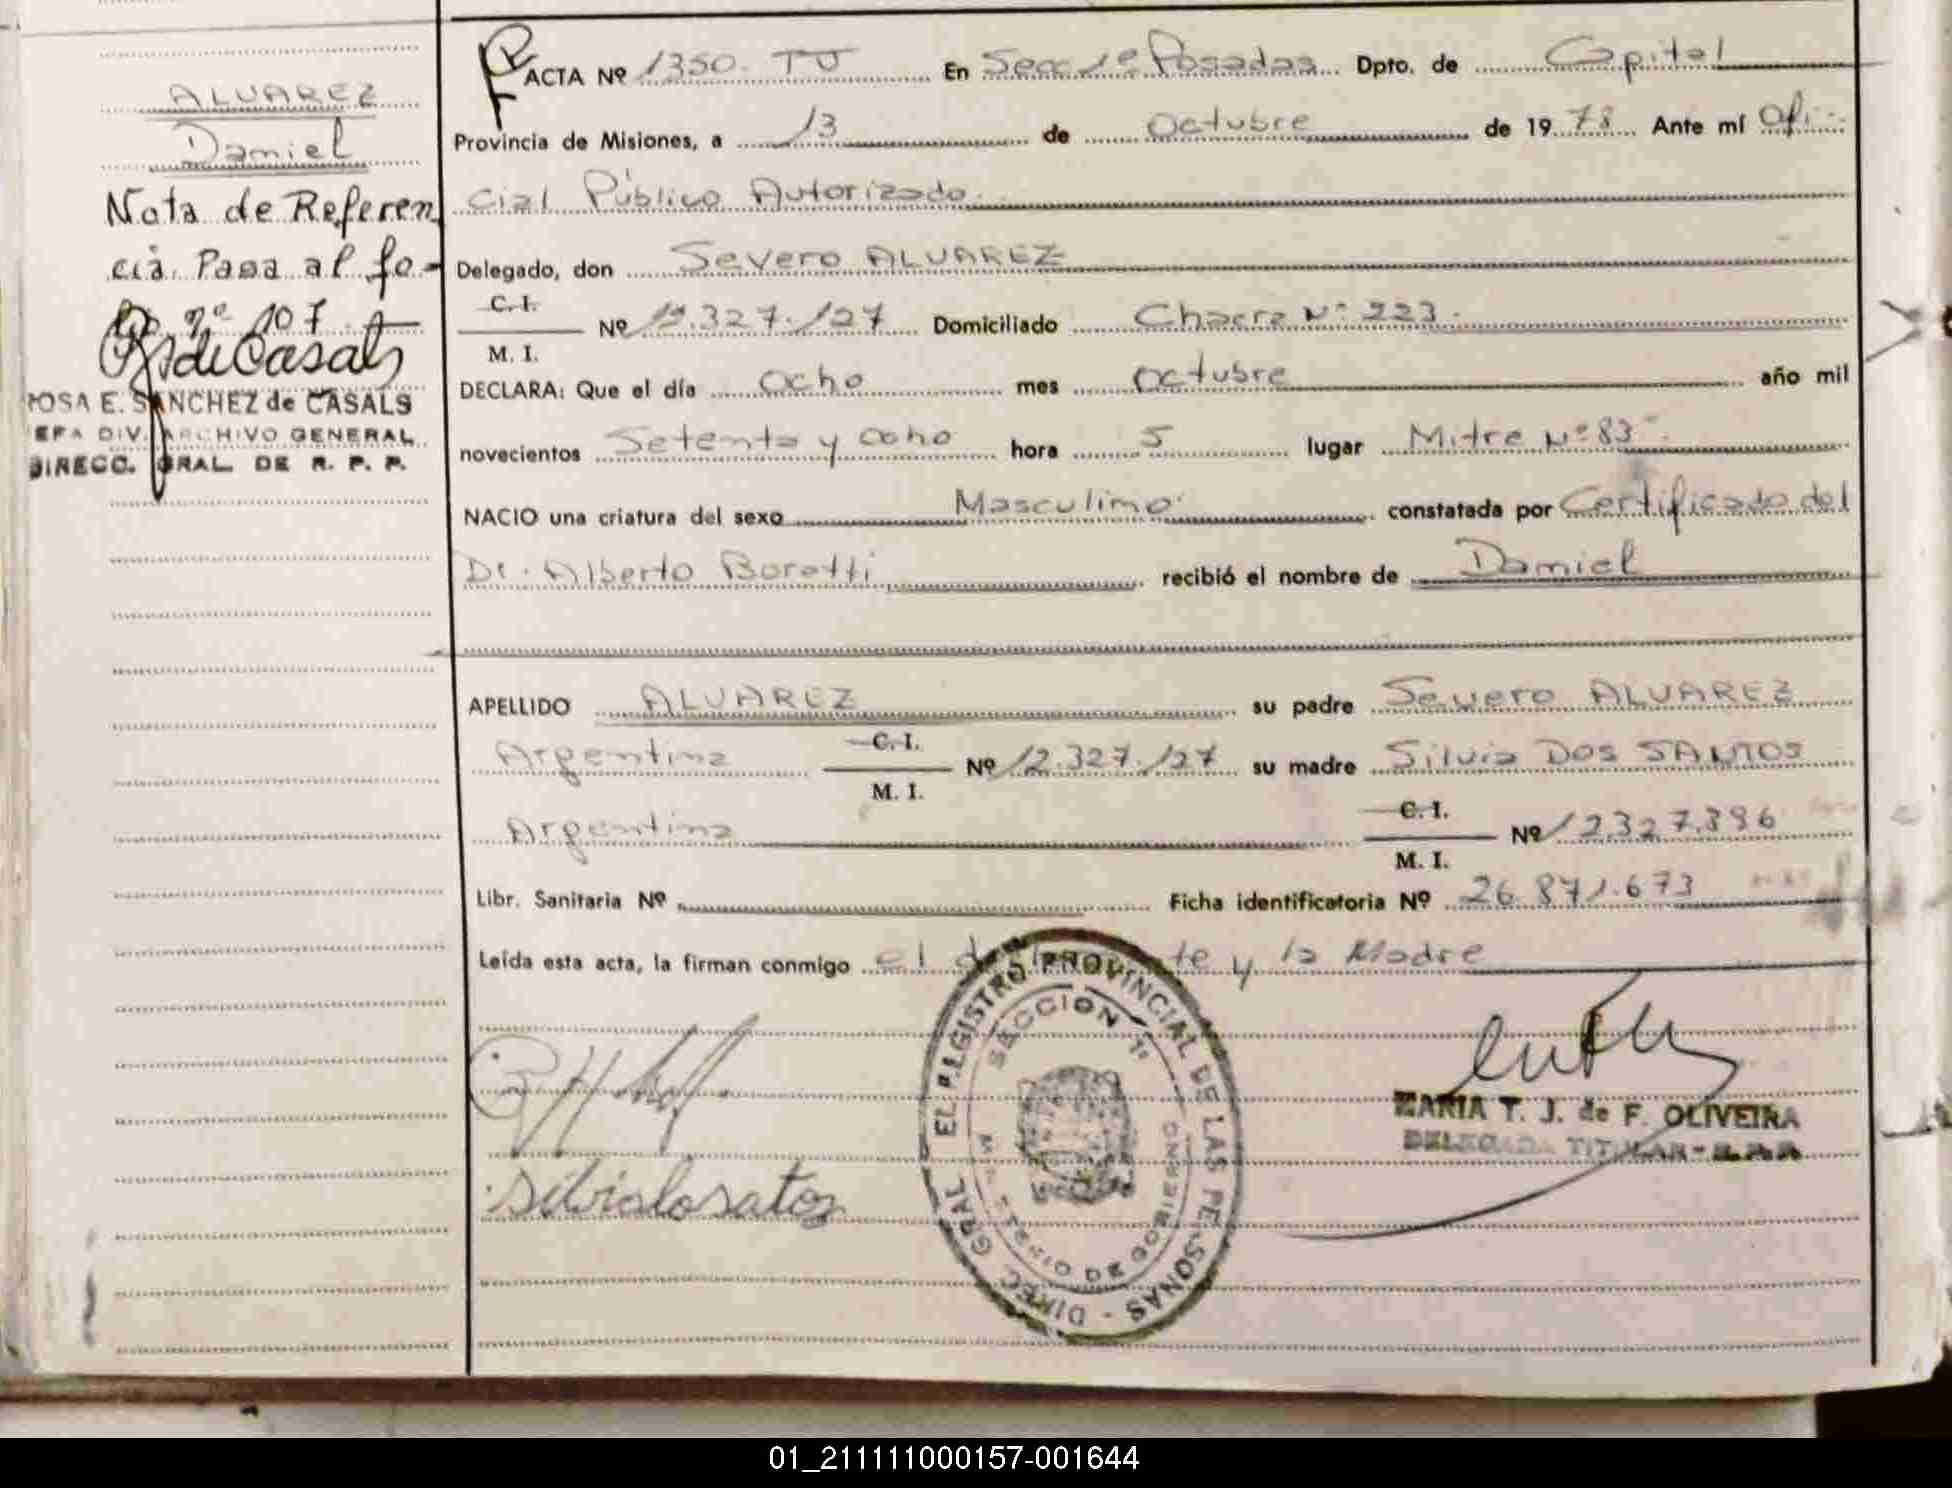 ALVAREZ
Daniel
Nota de Referen
cia. Pasa al fo-
lio nº 107
ROSA E. SANCHEZ de CASALS
JEFA DIV. ARCHIVO GENERAL
DIRECC. GRAL. DE R. P. P.
ACTA Nº 1350. TU En Secc 1º Posadas Dpto. de Capital
Provincia de Misiones, a 13 de Octubre de 1978 Ante mí Ofi-
cial Público Autorizado.
Delegado, don Severo ALVAREZ
C. I.
M. I. Nº 12.327.127 Domiciliado Chacra Nº 223.
DECLARA: Que el día Ocho mes Octubre año mil
novecientos Setenta y Ocho hora 5 lugar Mitre Nº 83
NACIO una criatura del sexo Masculino constatada por Certificado del
Dr. Alberto Boratti recibió el nombre de Daniel
APELLIDO ALVAREZ su padre Severo ALVAREZ
Argentina C. I.
M. I. Nº 12.327.127 su madre Silvia DOS SANTOS
Argentina C. I.
M. I. Nº 12.327.396
Libr. Sanitaria Nº Ficha identificatoria Nº 26.871.673
Leída esta acta, la firman conmigo el te y la Madre
DIREC. GRAL. EL REGISTRO PROVINCIAL DE LAS PERSONAS
SECCION 1º
MARIA T. J. de F. OLIVEIRA
DELEGADA TITULAR - R.P.P.
01_211111000157-001644